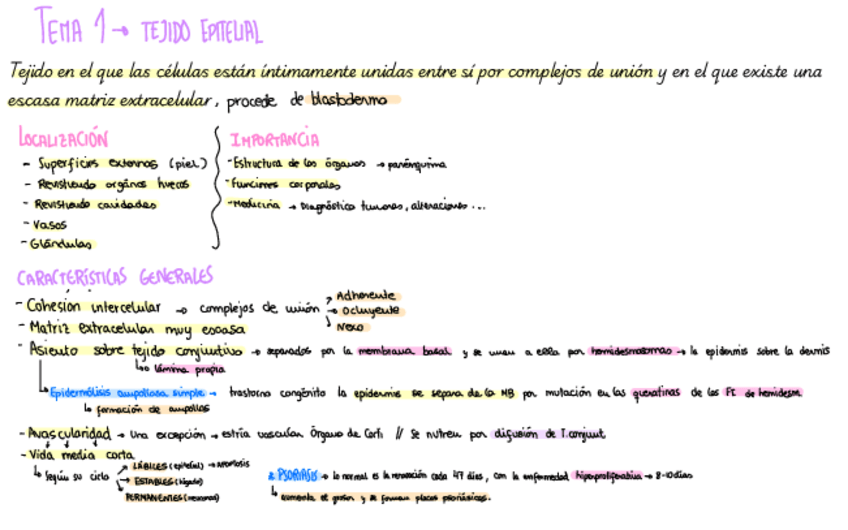 TEMA 1 → TEJIDO EPITELIAL
Tejido en el que las células están íntimamente unidas entre sí por complejos de unión y en el que existe una
escasa matriz extracelular, procede de blastodermo
LOCALIZACIÓN
- Superficies externas (piel)
- Revistiendo órganos huecos
- Revistiendo cavidades
- Vasos
- Glándulas
IMPORTANCIA
- Estructura de los órganos → parénquima
- Funciones corporales
- Medicina → Diagnóstico tumores, alteraciones ...
CARACTERÍSTICAS GENERALES
- Cohesión intercelular → complejos de unión → Adherente
→ Ocluyente
→ Nexo
- Matriz extracelular muy escasa
- Asiento sobre tejido conjuntivo → separados por la membrana basal y se unen a ella por hemidesmosomas → la epidermis sobre la dermis
↳ lámina propia
↳ Epidermólisis ampollosa simple → trastorno congénito la epidermis se separa de la MB por mutación en las queratinas de los FI de hemidesm
↳ formación de ampollas
- Avascularidad → Una excepción → estría vascular Órgano de Corti // Se nutren por difusión de T.conjunt
- Vida media corta
↳ Según su ciclo → LÁBILES (epitelial) → apoptosis
→ ESTABLES (hígado)
→ PERMANENTES (neuronas)
* PSORIASIS → lo normal es la renovación cada 47 días, con la enfermedad hiperproliferativa → 8-10 días
↳ aumenta el grosor y se forman placas psoriásicas.